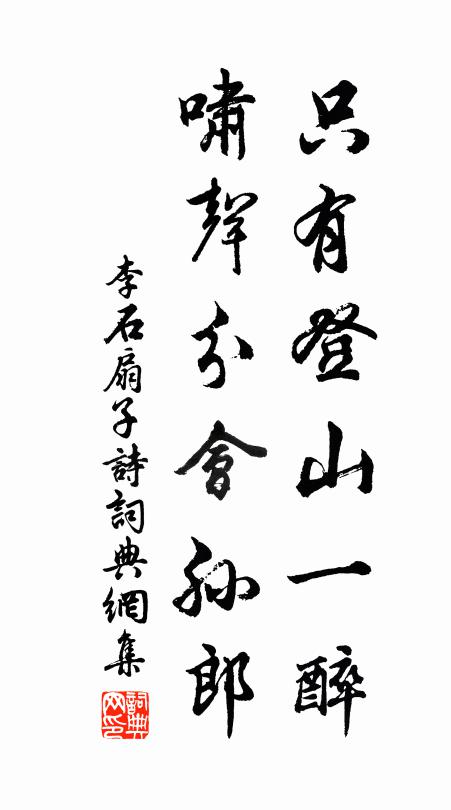 只有登山一醉
嘯聲分會孫郎
李石扇子詩詞典網集
詞典網印